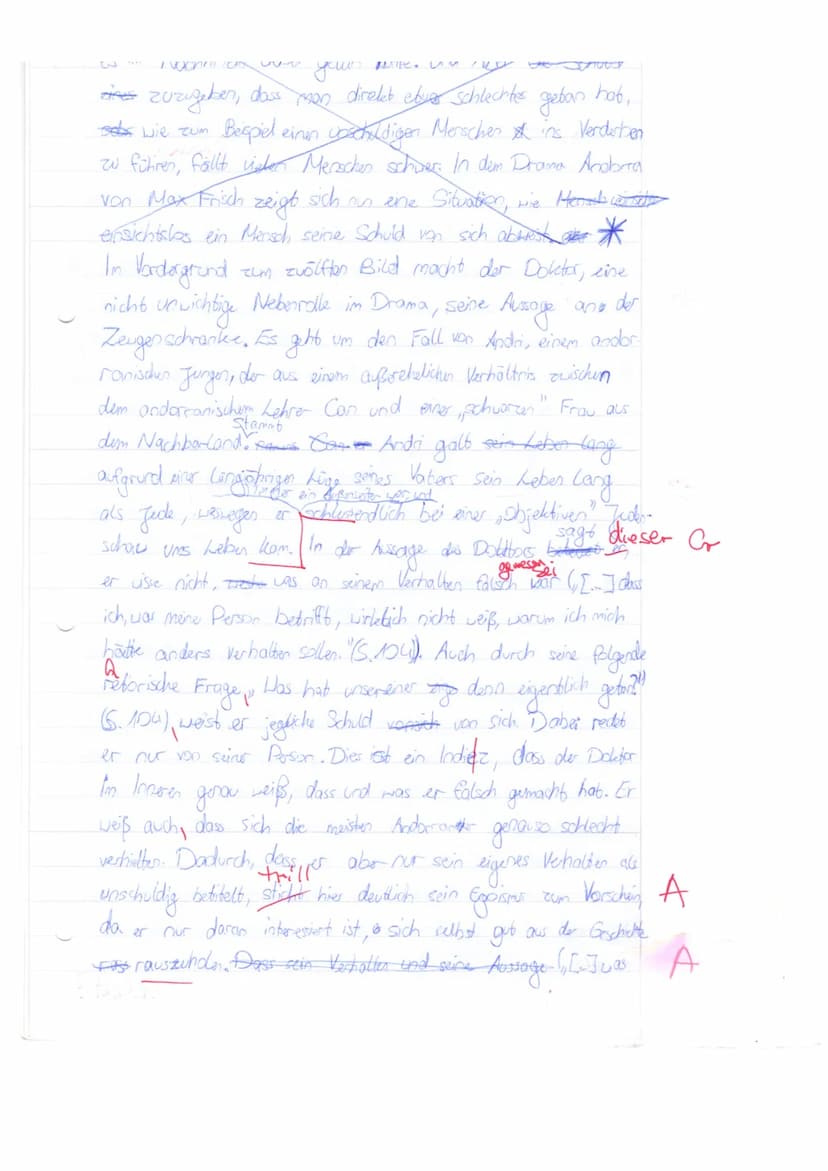 zuzugeben, dass man direkt etwas schlechtes getan hat,
wie zum Bespiel einen unschuldigen Menschen ins Verderben
zu führen, fällt vielen Menschen schwer. In dem Drama Andorra
von Max Frisch zeigt sich nun eine Situation, wie
einsichtslos ein Mensch seine Schuld von sich abweist. *
Im Vordergrund zum zwölften Bild macht der Doktor, eine
nicht unwichtige Nebenrolle im Drama, seine Aussage an der
Zeugenschranke. Es geht um den Fall von Andri, einem andor-
ranischen Jungen, der aus einem außerehelichen Verhältnis zwischen
dem andorranischem Lehrer Can und einer "schwarzen" Frau aus
stammt
dem Nachbarland. Andri galt sein Leben lang
aufgrund einer langjährigen Lüge seines Vaters sein Leben lang
als Jude, weswegen er schlussendlich bei einer „Objektiven" Juden-
sagt dieser Gr
schau ums Leben kam. In der Aussage des Doktors er
gewesen sei
er wisse nicht, was an seinem Verhalten falsch war („[...] dass
ich, was meine Person betrifft, wirklich nicht weiß, warum ich mich
hätte anders verhalten sollen."(S.104)). Auch durch seine folgende
R
retorische Frage, „Was hat unsereiner denn eigentlich getan?"
(S. 104), weist er jegliche Schuld von sich. Dabei redet
er nur von seiner Person. Dies ist ein Indiez, dass der Doktor
im Inneren genau weiß, dass und was er falsch gemacht hat. Er
weiß auch, dass sich die meisten Andorraner genauso schlecht
verhielten. Dadurch, dass er aber nur sein eigenes Verhalten als
tritt
unschuldig betitelt, sticht hier deutlich sein Egoismus zum Vorschein, A
da er nur daran interesiert ist, sich selbst gut aus der Geschichte
rauszuholen. Dass sein Verhalten und seine Aussage („[...] was A